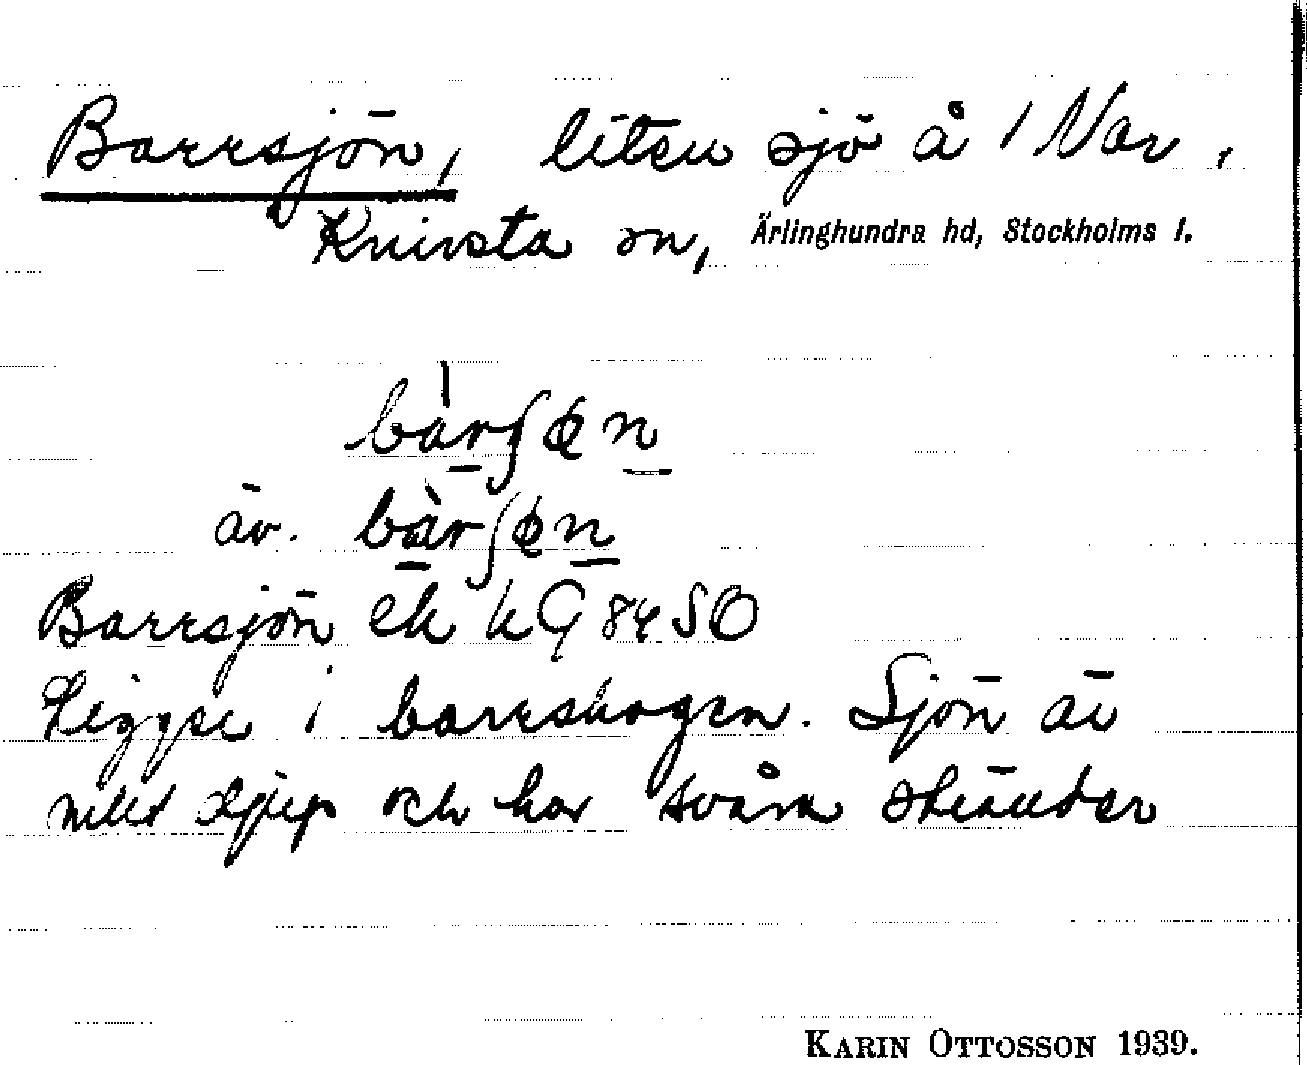 Barrsjön, liten sjö å 1 Var,
Knivsta sn, Ärlinghundra hd, Stockholms l.
bàrʃøn
äv. bàrʃøn
Barrsjön ek
Ligger i barrskogen. Sjön är
mkt djup och har svåra stränder
KARIN OTTOSSON 1939.